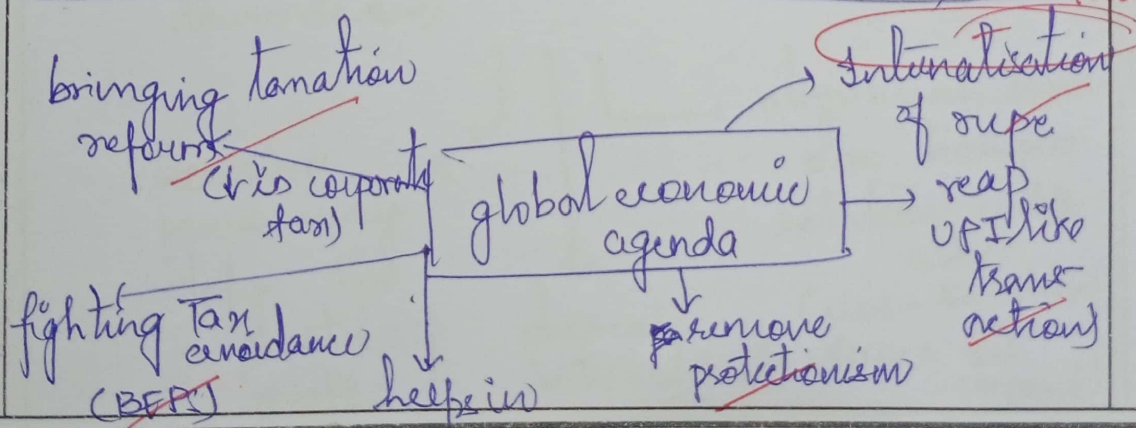 bringing taxation
reforms
(15% corporate
tax)
global economic
agenda
Internatisation
of rupe
reap
UPI like
trans-
actions
fighting Tax
avoidance
(BEPS)
helps in
remove
protectionism